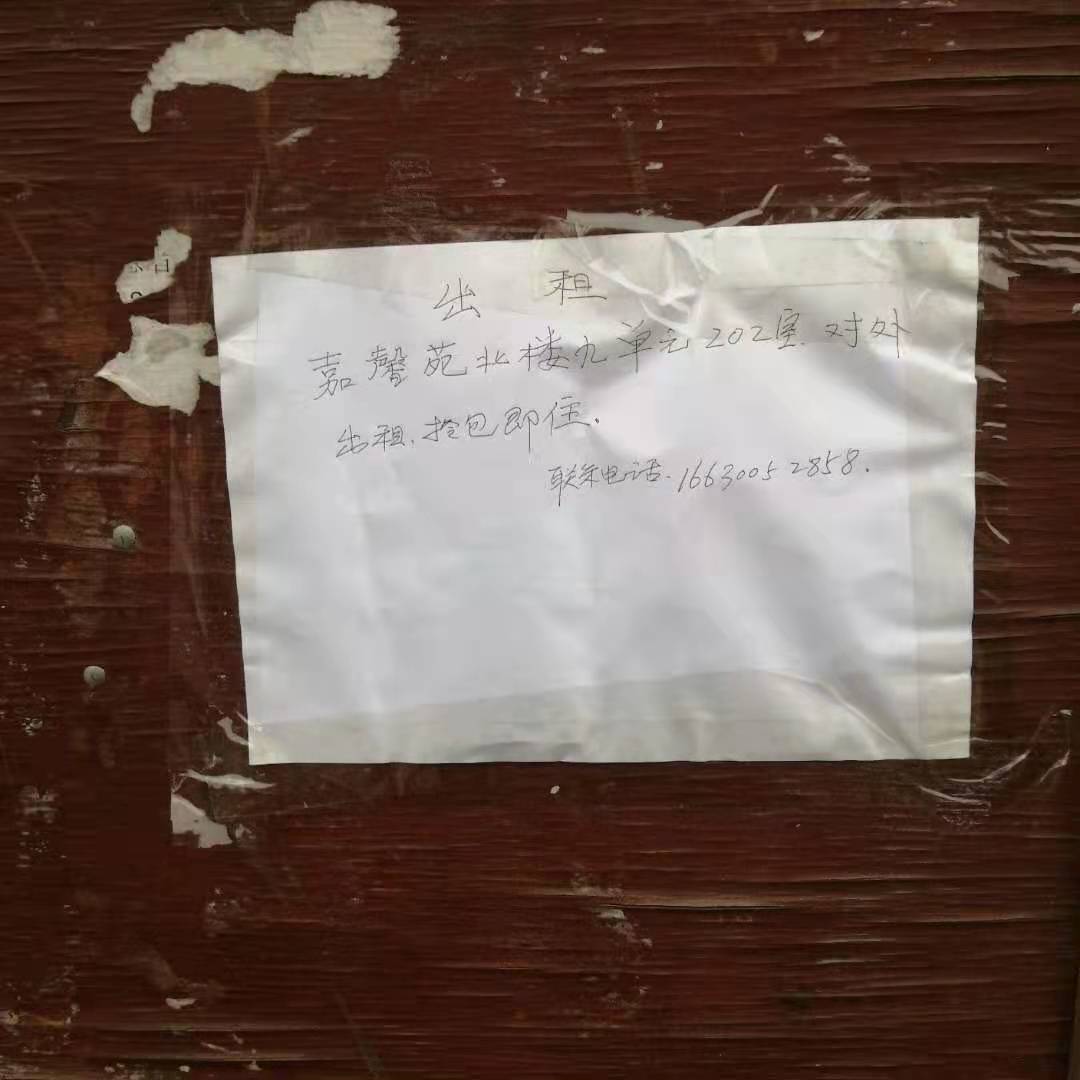 出租
嘉馨苑北楼九单元202室.对处
出租.拎包即住.
联系电话.16630052858.